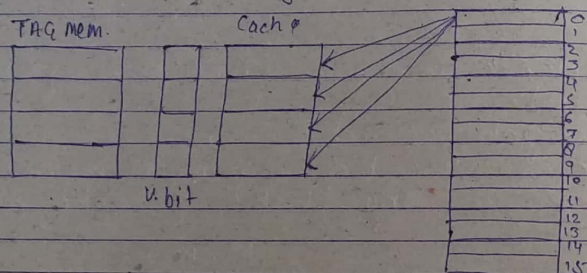 TAG mem.
Cache
V. bit
0
1
2
3
4
5
6
7
8
9
10
11
12
13
14
15